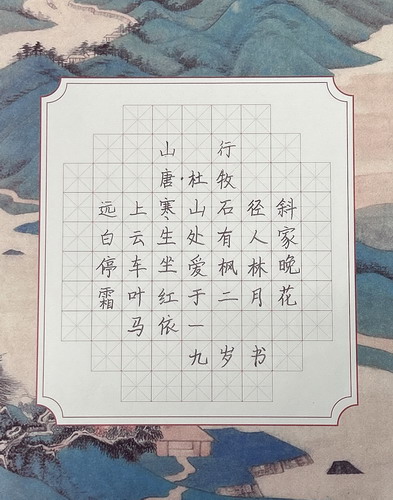 山行
唐·杜牧
远上寒山石径斜
白云生处有人家
停车坐爱枫林晚
霜叶红于二月花
马依一
九岁书